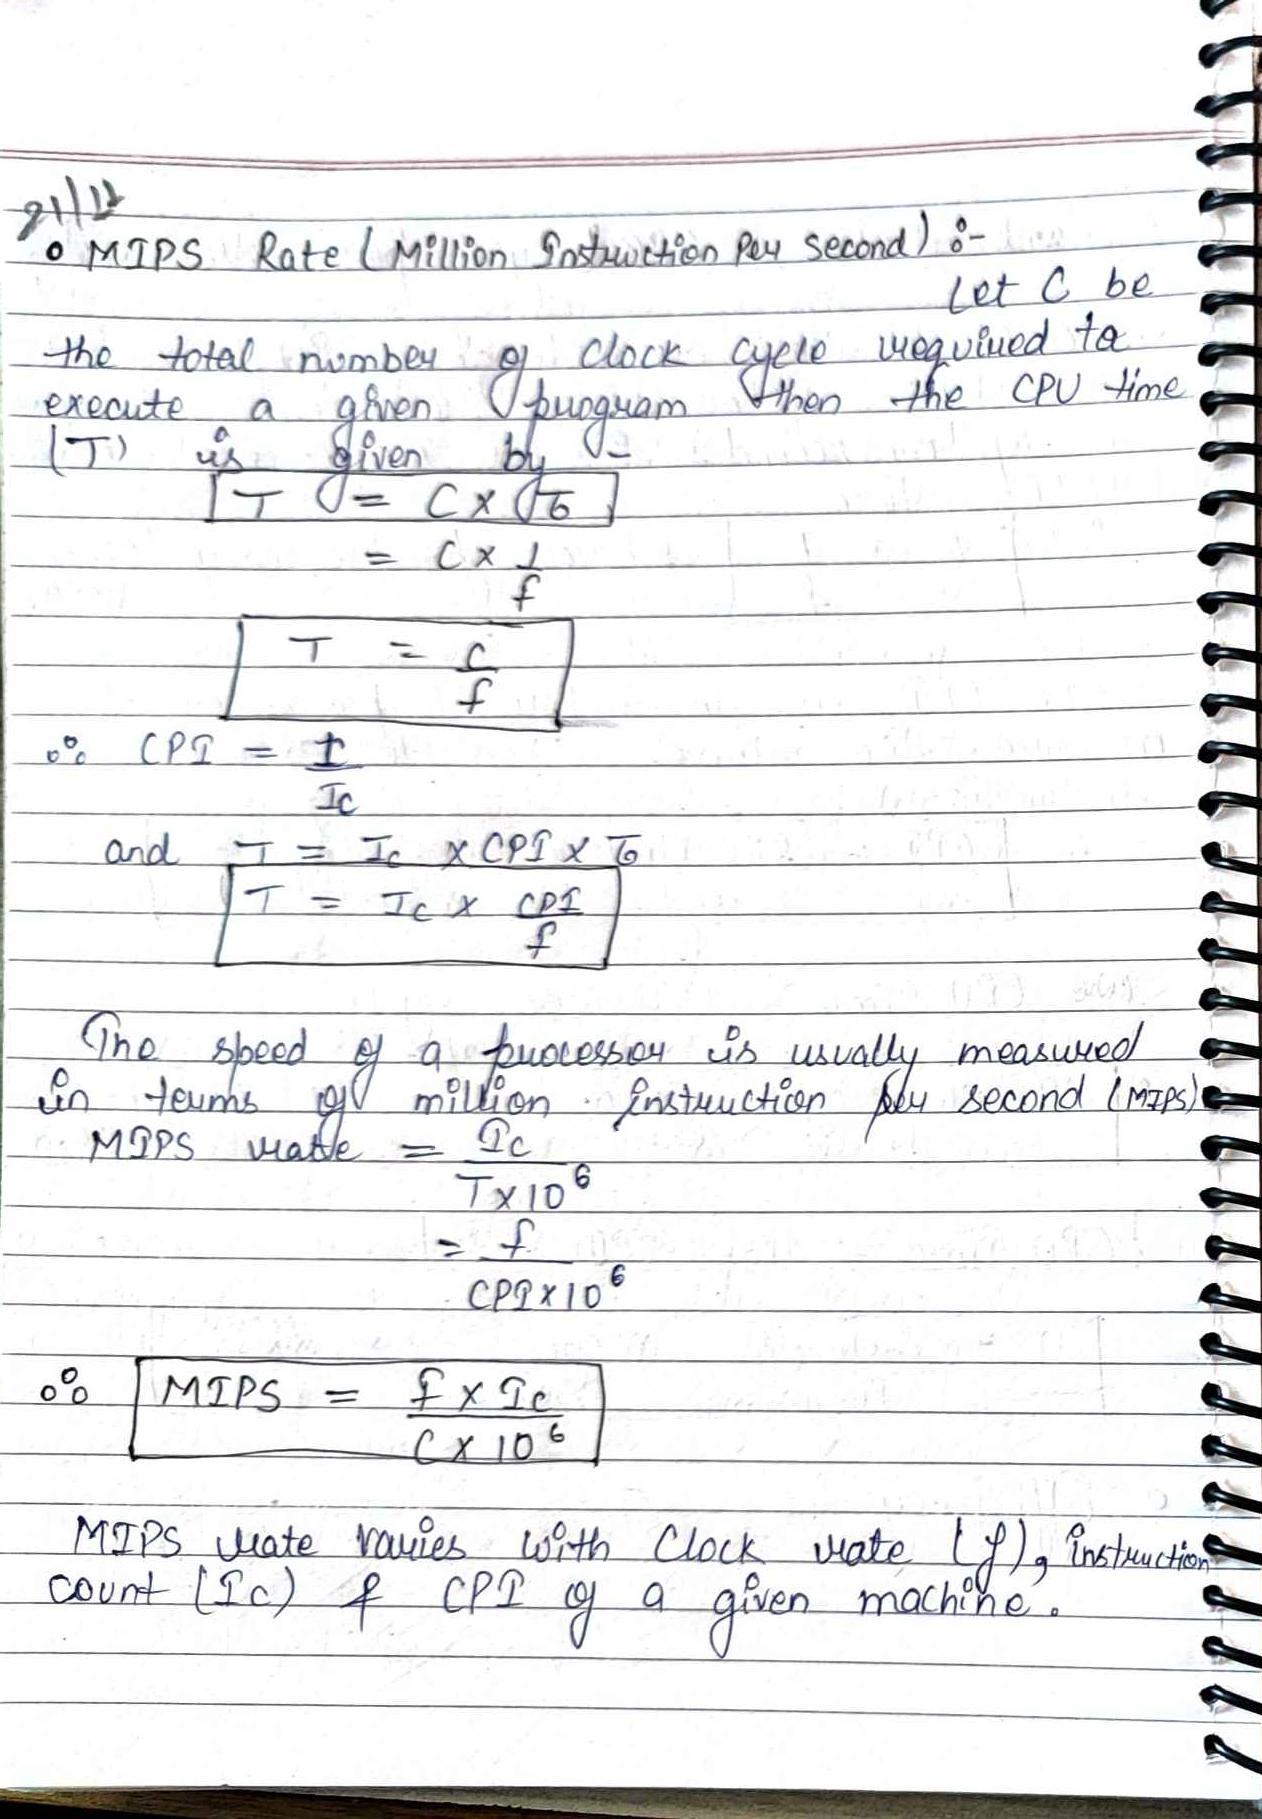 21/12
• MIPS Rate (Million Instruction Per second) :-
Let C be
the total number of clock cycle required to
execute a given program then the CPU time
(T) is given by -
T = C × τ
= C × 1/f
T = C/f
∴ CPI = 1/Ic
and T = Ic × CPI × τ
T = Ic × CPI/f
The speed of a processor is usually measured
in terms of million instruction per second (MIPS)
MIPS rate = Ic/T×10⁶
= f/CPI×10⁶
∴ MIPS = f × Ic/C × 10⁶
MIPS rate varies with Clock rate (f), instruction
count (Ic) & CPI of a given machine.